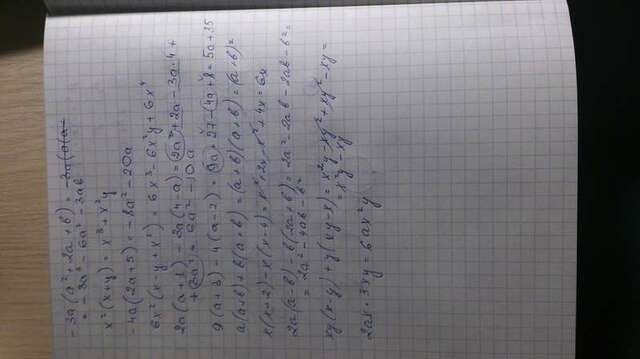 -3a(a²+2a+b) =
= -3a³-6a²-3ab
x²(x+y) = x³+x²y
-4a(2a+5) = -8a²-20a
6x²(x-y+x²) = 6x³-6x²y+6x⁴
2a(a+1)-3a(4-a) = 2a²+2a-3a·4+
+3a² = 5a²-10a
9(a+3)-4(a-2) = 9a+27-4a+8 = 5a+35
a(a+b)+b(a+b) = (a+b)(a+b) = (a+b)²
x(x+2)-x(x-4) = x²+2x-x²+4x = 6x
2a(a-b)-b(2a+b) = 2a²-2ab-2ab-b² =
= 2a²-4ab-b²
xy(x-y)+y(xy-x) = x²y-xy²+xy²-xy =
= x²y-xy
2ax·3xy = 6ax²y